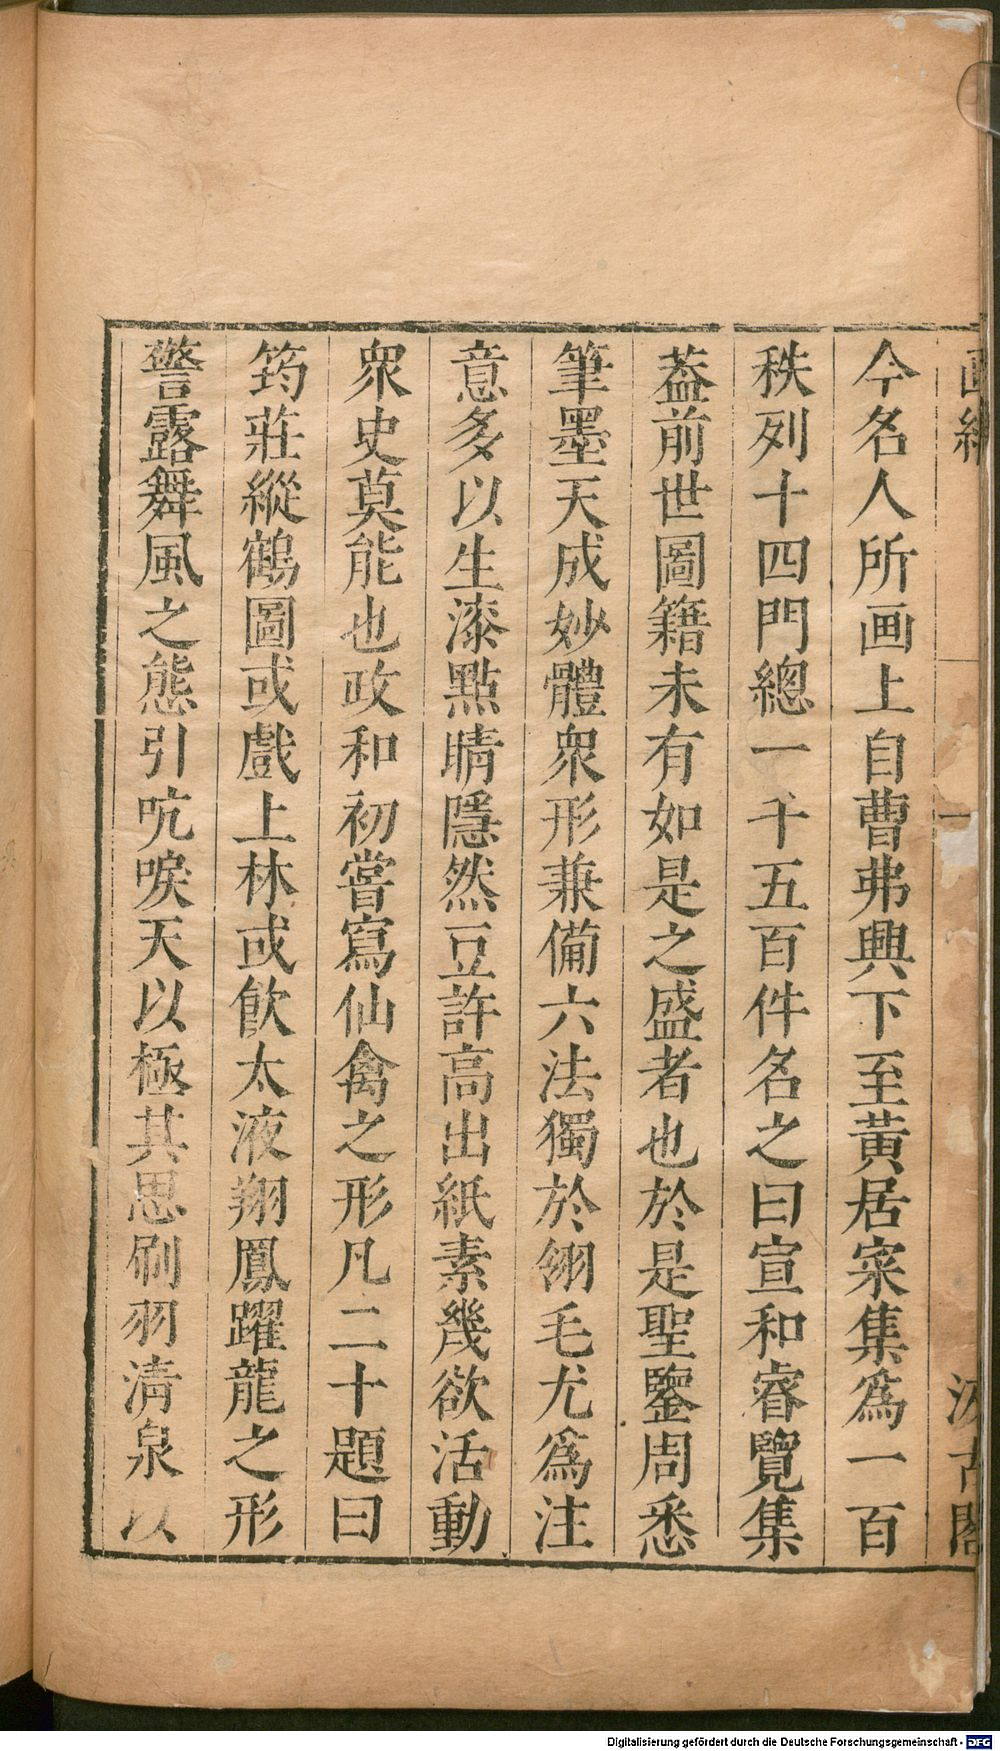 画繼
一
汲古閣
今名人所画上自曹弗興下至黃居寀集爲一百
秩列十四門總一千五百件名之曰宣和睿覽集
葢前世圖籍未有如是之盛者也於是聖鑒周悉
筆墨天成妙體衆形兼備六法獨於翎毛尤爲注
意多以生漆點睛隱然豆許高出紙素幾欲活動
衆史莫能也政和初嘗寫仙禽之形凡二十題曰
筠莊縱鶴圖或戲上林或飮太液翔鳳躍龍之形
警露舞風之態引吭唳天以極其思刷羽清泉以
Digitalisierung gefördert durch die Deutsche Forschungsgemeinschaft - DFG